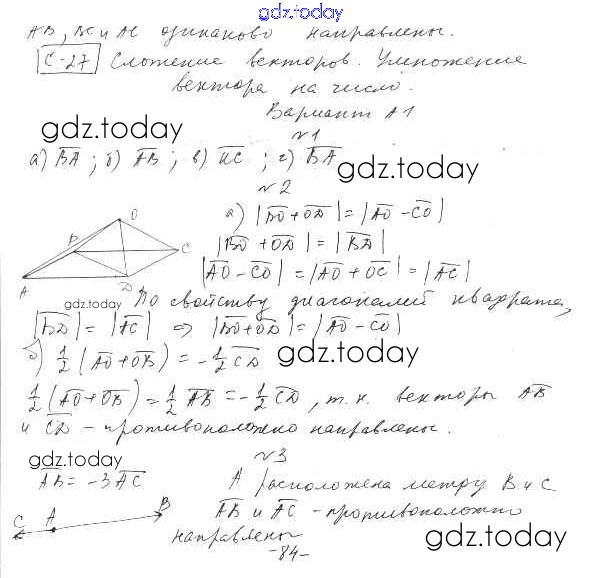 gdz.today
AB, BC и AC одинаково направлены.
С-27 Сложение векторов. Умножение
вектора на число.
Вариант А1
gdz.today
№1
а) BA; б) AB; в) KC; г) BA
gdz.today
№2
а) |BO+OD| = |AO-CO|
|BO+OD| = |BD|
|AO-CO| = |AO+OC| = |AC|
O
B
C
A
D
gdz.today
По свойству диагоналей квадрата,
|BD| = |AC| ⇒ |BO+OD| = |AO-CO|
б) 1/2 (AO+OB) = -1/2 CD
gdz.today
1/2 (AO+OB) = 1/2 AB = -1/2 CD, т.к. векторы AB
и CD - противоположно направлены.
№3
gdz.today
AB = -3AC
A расположена метру B и C
AB и AC - противоположно
направлены
C A B
gdz.today
-84-